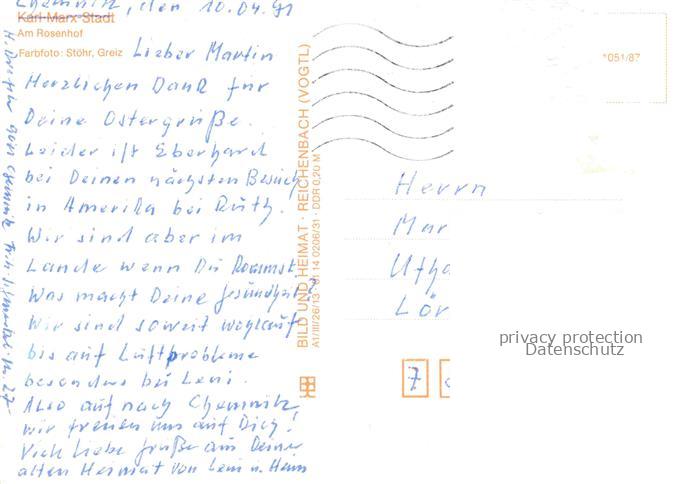 Chemnitz, den 10.04.91
Karl-Marx-Stadt
Am Rosenhof
Farbfoto: Stöhr, Greiz
Lieber Martin
Herzlichen Dank für
Deine Ostergrüße.
Leider ist Eberhard
bei Deinen nächsten Besuch
in Amerika bei Ruth.
Wir sind aber im
Lande wenn Du kommst.
Was macht Deine Gesundheit?
Wir sind soweit wohlauf
bis auf Luftprobleme
besonders bei Leni.
Also auf nach Chemnitz
wir freuen uns auf Dich!
Viele liebe Grüße aus Deiner
alten Heimat von Leni u. Heinz
Chemnitz
BILD UND HEIMAT · REICHENBACH (VOGTL)
A1/III/26/13 · 01 14 0206/31 · DDR 0,20 M
*051/87
Herrn
Mar
Lör
7
privacy protection
Datenschutz